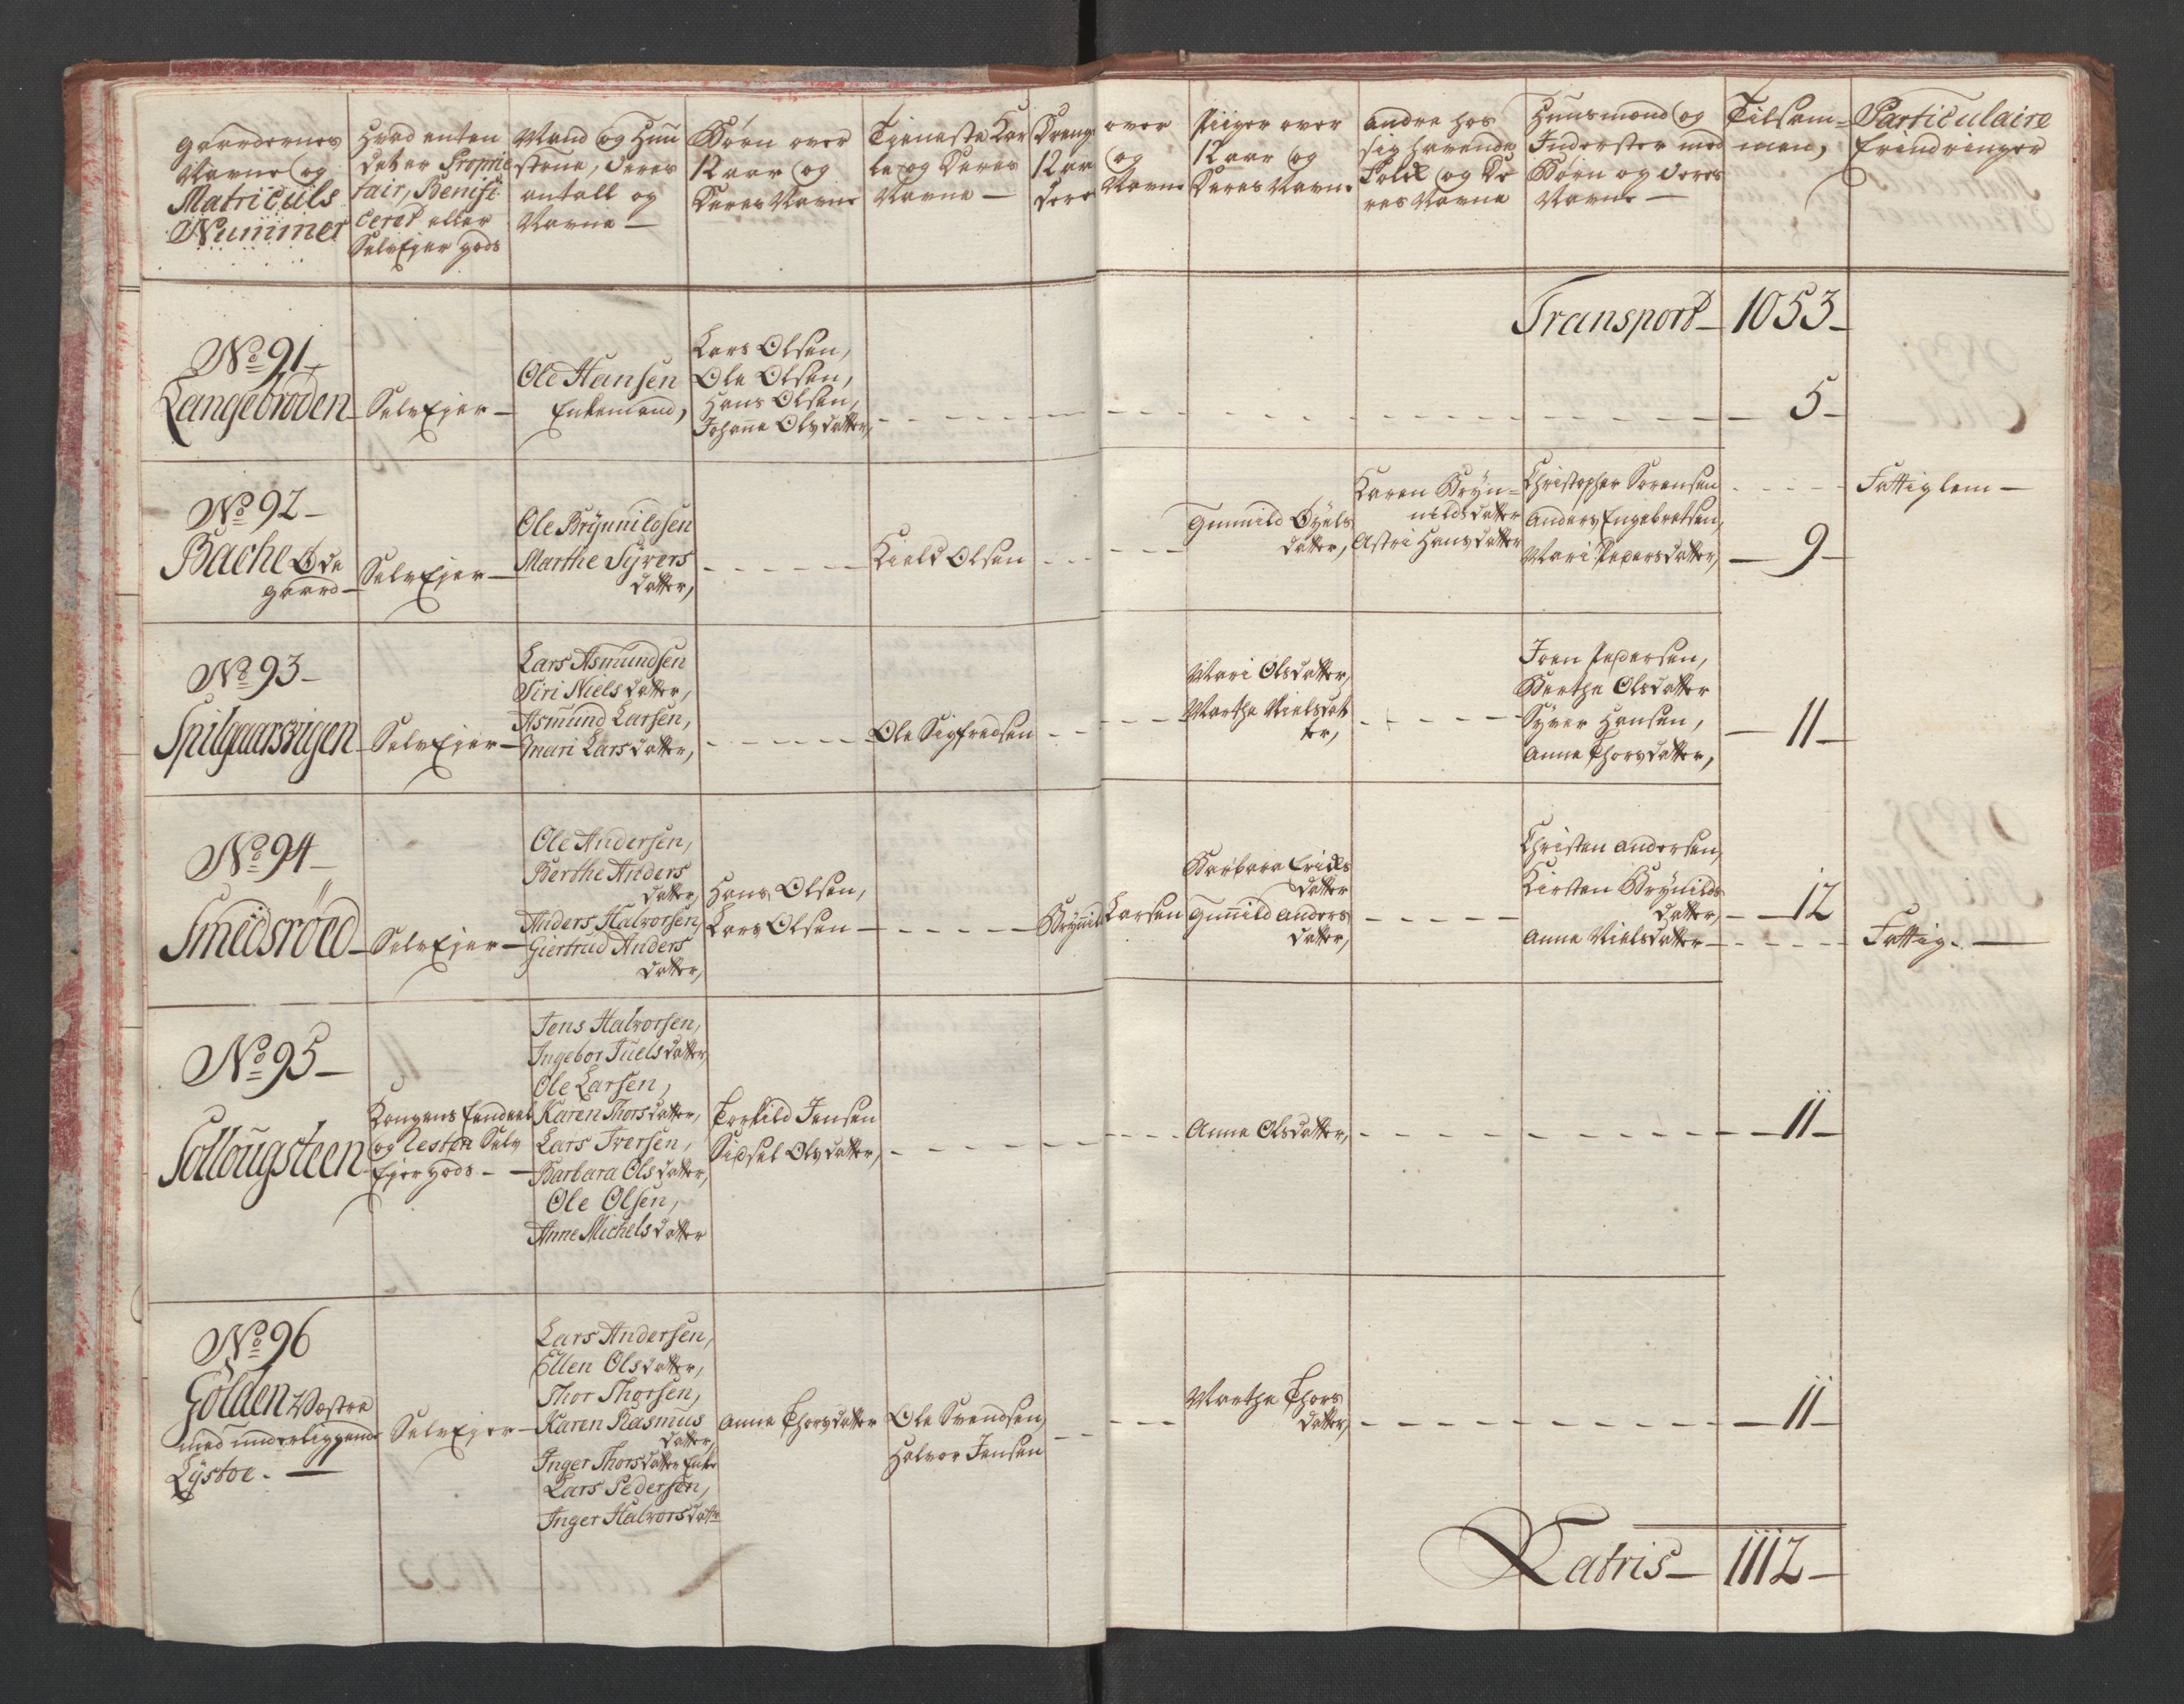 Gaardernes
Navne og
Matriculs
Nummer
Hvad enten
det er Proprie
tair, Benifi
ceret eller
SelvEjer gods
Mand og Huu
strue, deres
antall og
Navne —
Børn over
12 aar og
Deres Navne
Tieneste Kar
le og Deres
Navne —
Drenge over
12 aar og
Deres Navne
Piiger over
12 aar og
Deres Navne
Andre hos
sig havende
Folck og De
res Navne
Huusmænd og
Inderster med
Børn og deres
Navne —
Tilsam=
men,
Particulaire
Erindringer
Transport— 1053—
No 91—
Langebröden— SelvEjer—
Ole Hansen
Enkemand,
Lars Olsen,
Ole Olsen,
Hans Olsen,
Johanne Olsdatter,
5—
No 92—
Bache Øde
gaard— SelvEjer—
Ole Brÿnnildsen
Marthe Sÿvers
datter,
Kield Olsen
Gunnild
datter,
Karen Brÿn=
nildsdatter
Astri Hansdatter
Christopher Sørensen
Anders Engebretsen,
Mari Pedersdatter,
9—
Fattiglem—
No 93—
Spilgaarsvigen— SelvEjer—
Lars Asmundsen
Siri Nielsdatter,
Asmund Larsen,
Mari Larsdatter,
Ole Sigfredsen
Mari Olsdatter,
Marthe Nielsdat
ter,
Joen Pedersen,
Berthe Olsdatter
Syver Hansen,
Anne Thorsdatter,
11—
No 94—
Smedsröed— SelvEjer—
Ole Andersen,
Berthe Anders
datter,
Anders Halvorsen,
Giertrud Anders
datter,
Hans Olsen,
Lars Olsen—
Brÿnild Larsen
Barbara Ericks
datter
Gunnild Anders
datter,
Christen Andersen,
Kirsten Brÿnilds
datter,
Anne Nielsdatter—
12
Fattig.—
No 95—
Sollougsteen
Kongens Eendeel
og Resten Selv
Ejer gods—
Jens Halvorsen,
Ingebor Juelsdatter,
Ole Larsen,
Karen Thorsdatter,
Lars Iversen,
Barbara Olsdatter,
Ole Olsen,
Anne Michelsdatter
Torkild Jensen
Sidsel Olsdatter,
Anne Olsdatter,
11—
No 96
Golden Westre
med underliggende
Lÿstoe.—
SelvEjer—
Lars Andersen,
Ellen Olsdatter,
Thor Thorsen,
Karen Rasmus
datter,
Inger Thorsdatter Enke
Lars Pedersen,
Inger Halvorsdatter
Anne Thorsdatter
Ole Svendsen,
Halvor Jensen
Marthe Thors
datter,
11—
Latris— 1112—